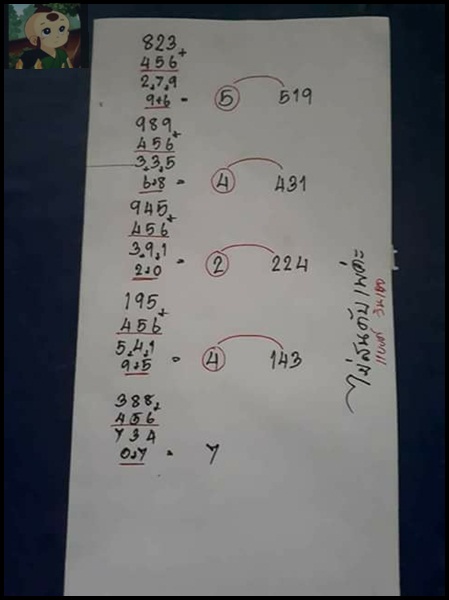 823+
456
2,7,9
9+6 = 5 519
989+
456
3,3,5
6+8 = 4 431
945+
456
3,9,1
2+0 = 2 224
195+
456
5,4,1
9+5 = 4 143
388+
456
734
0+7 = 7